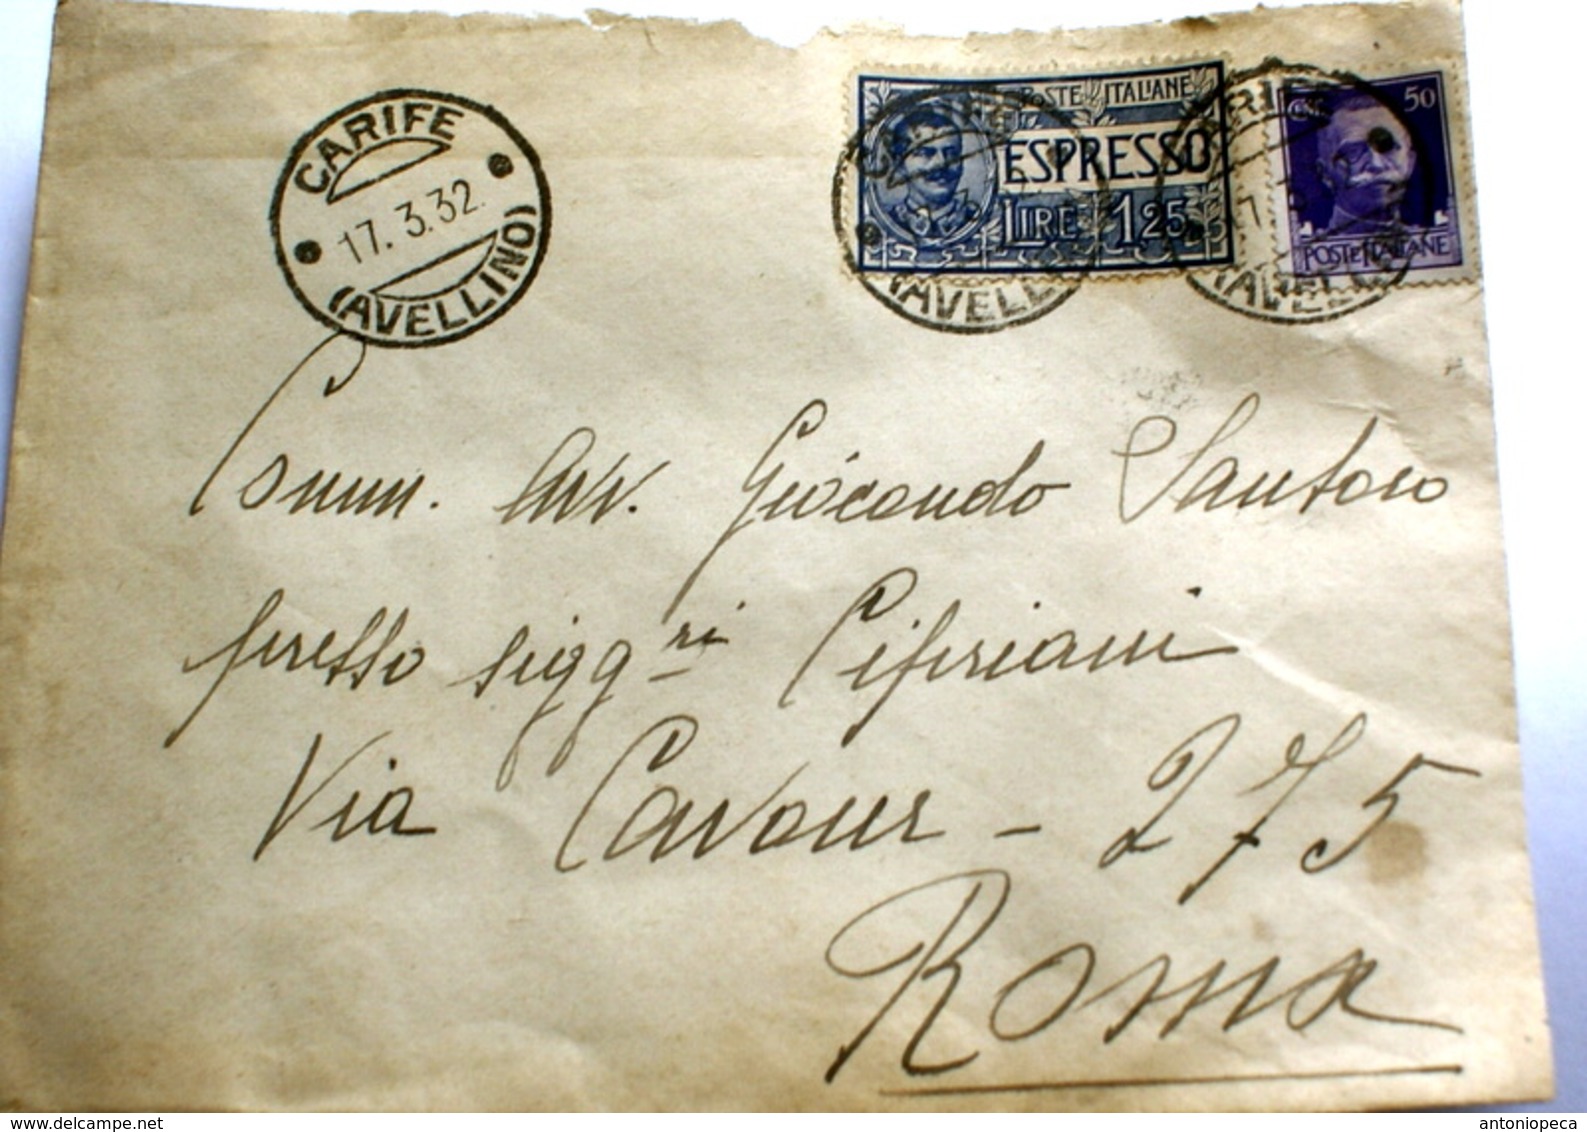 CARIFE
17.3.32.
(AVELLINO)
POSTE ITALIANE
ESPRESSO
LIRE 1,25
CENT. 50
POSTE ITALIANE
(AVELL
(AVELL
Comm. Avv. Giocondo Santoro
presso sigg.ri Cipriani
Via Cavour - 275
Roma
delcampe.net
antoniopeca